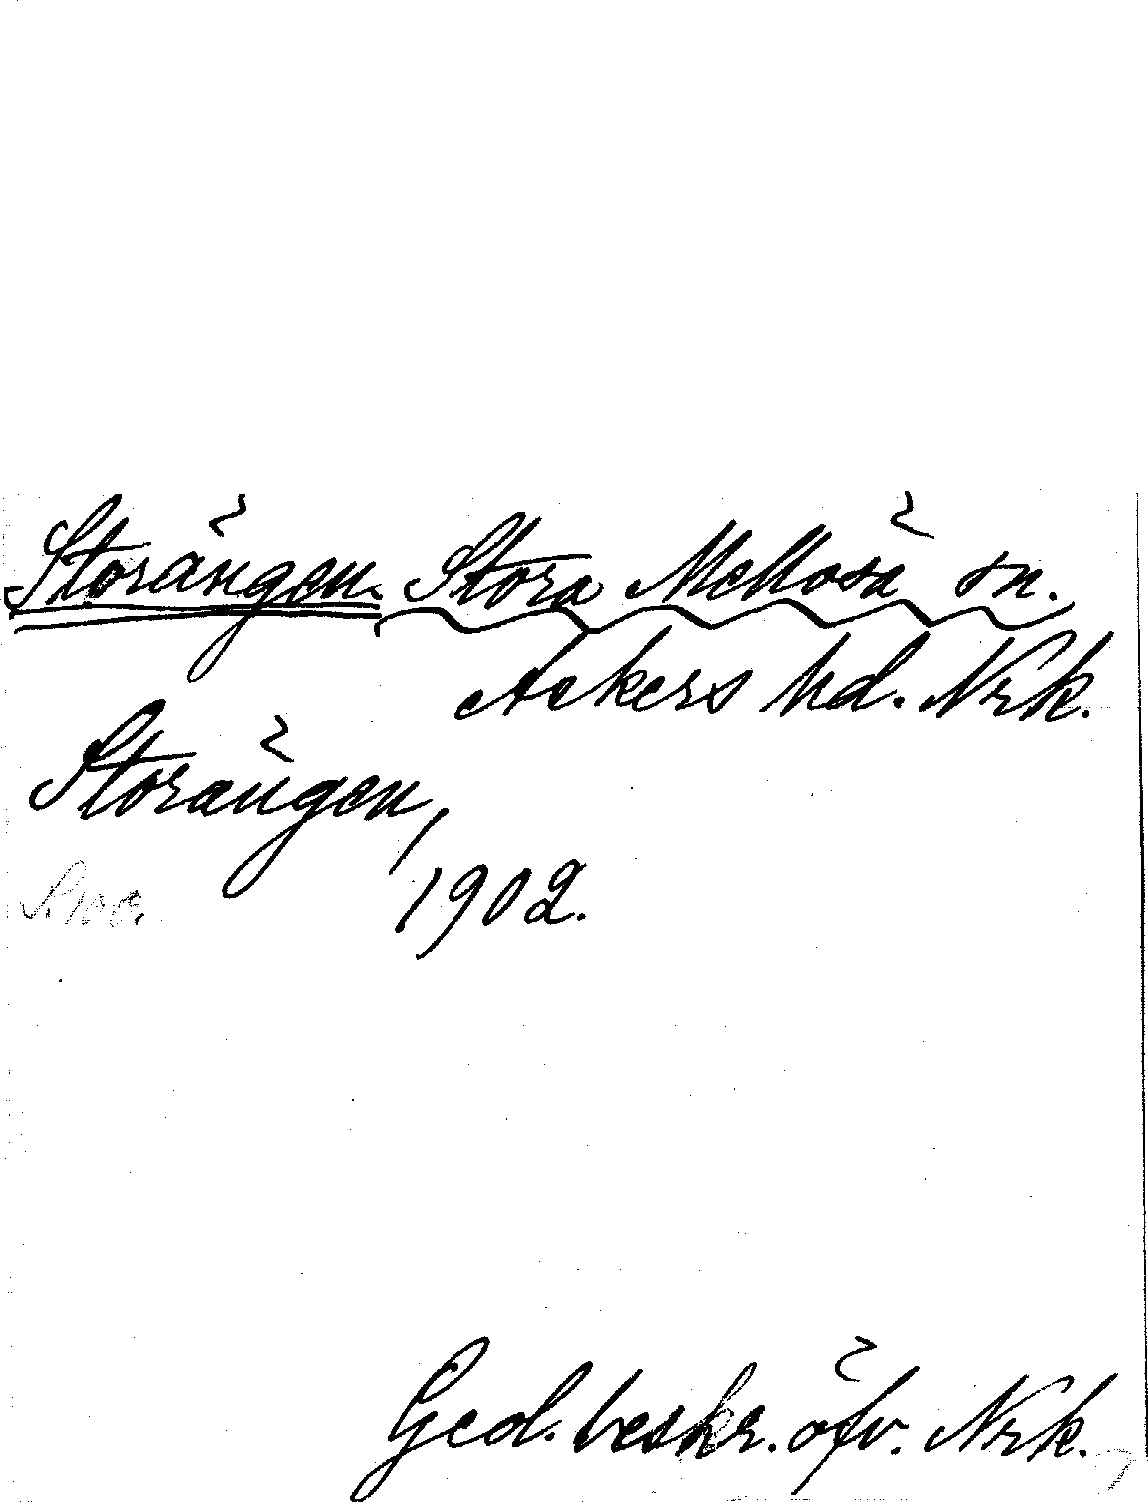 Storängen. Stora Mellösa sn.
Askers hd. Nrk.
Storängen,
1902.
Geol. beskr. öfv. Nrk.